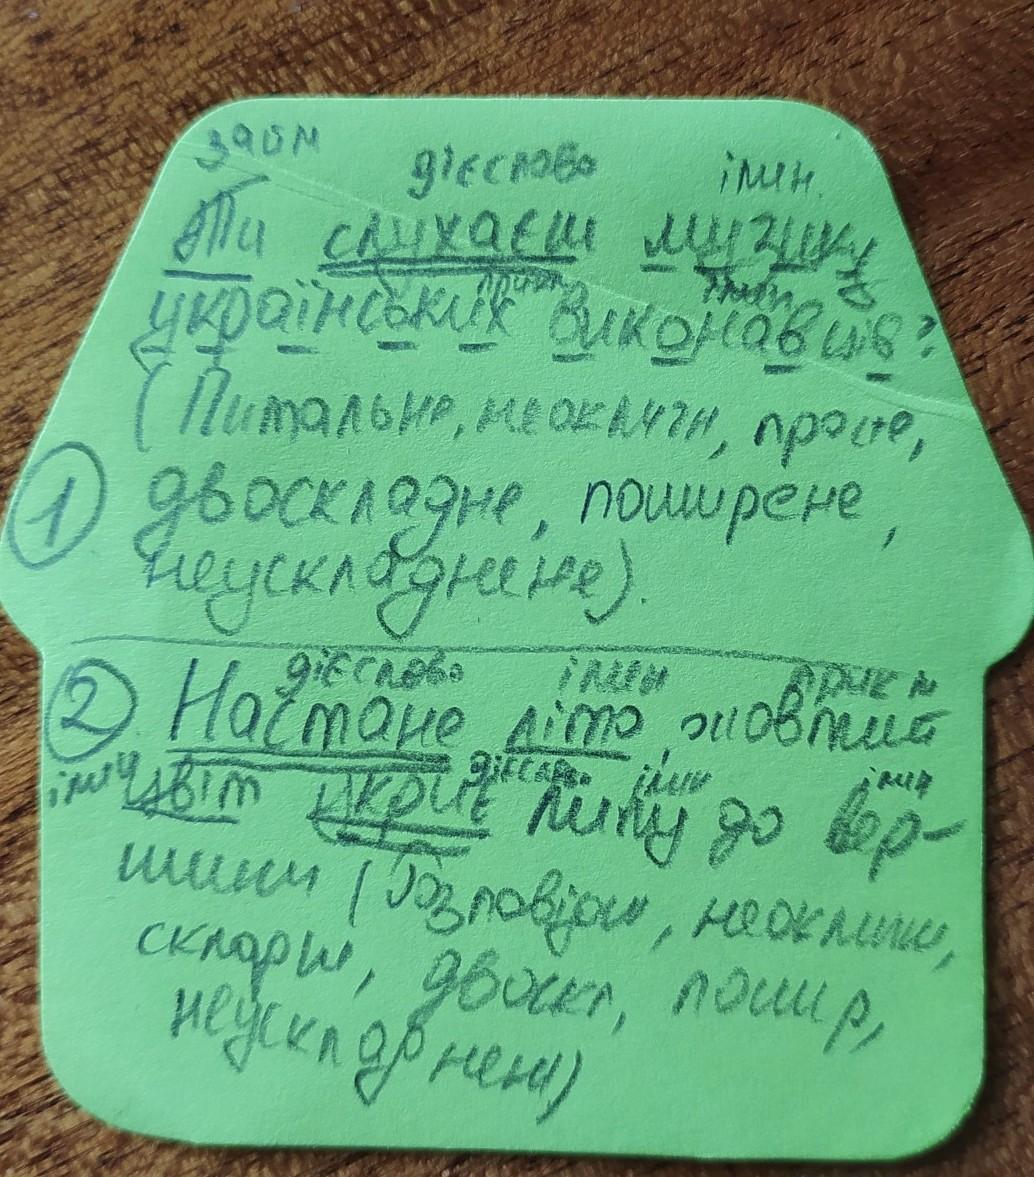 займ дієслово імен.
Ти слухаєш музику
прикм імен
українських виконавців?
(Питальне, неокличн, просте,
1 двоскладне, поширене,
неускладнене).
дієслово імен прикм
2 Настане літо, жовтий
імен дієслово імен імен
цвіт вкриє липу до вер-
шини (Розповідн, неокличн,
складн, двоскл, пошир,
неускладнені)